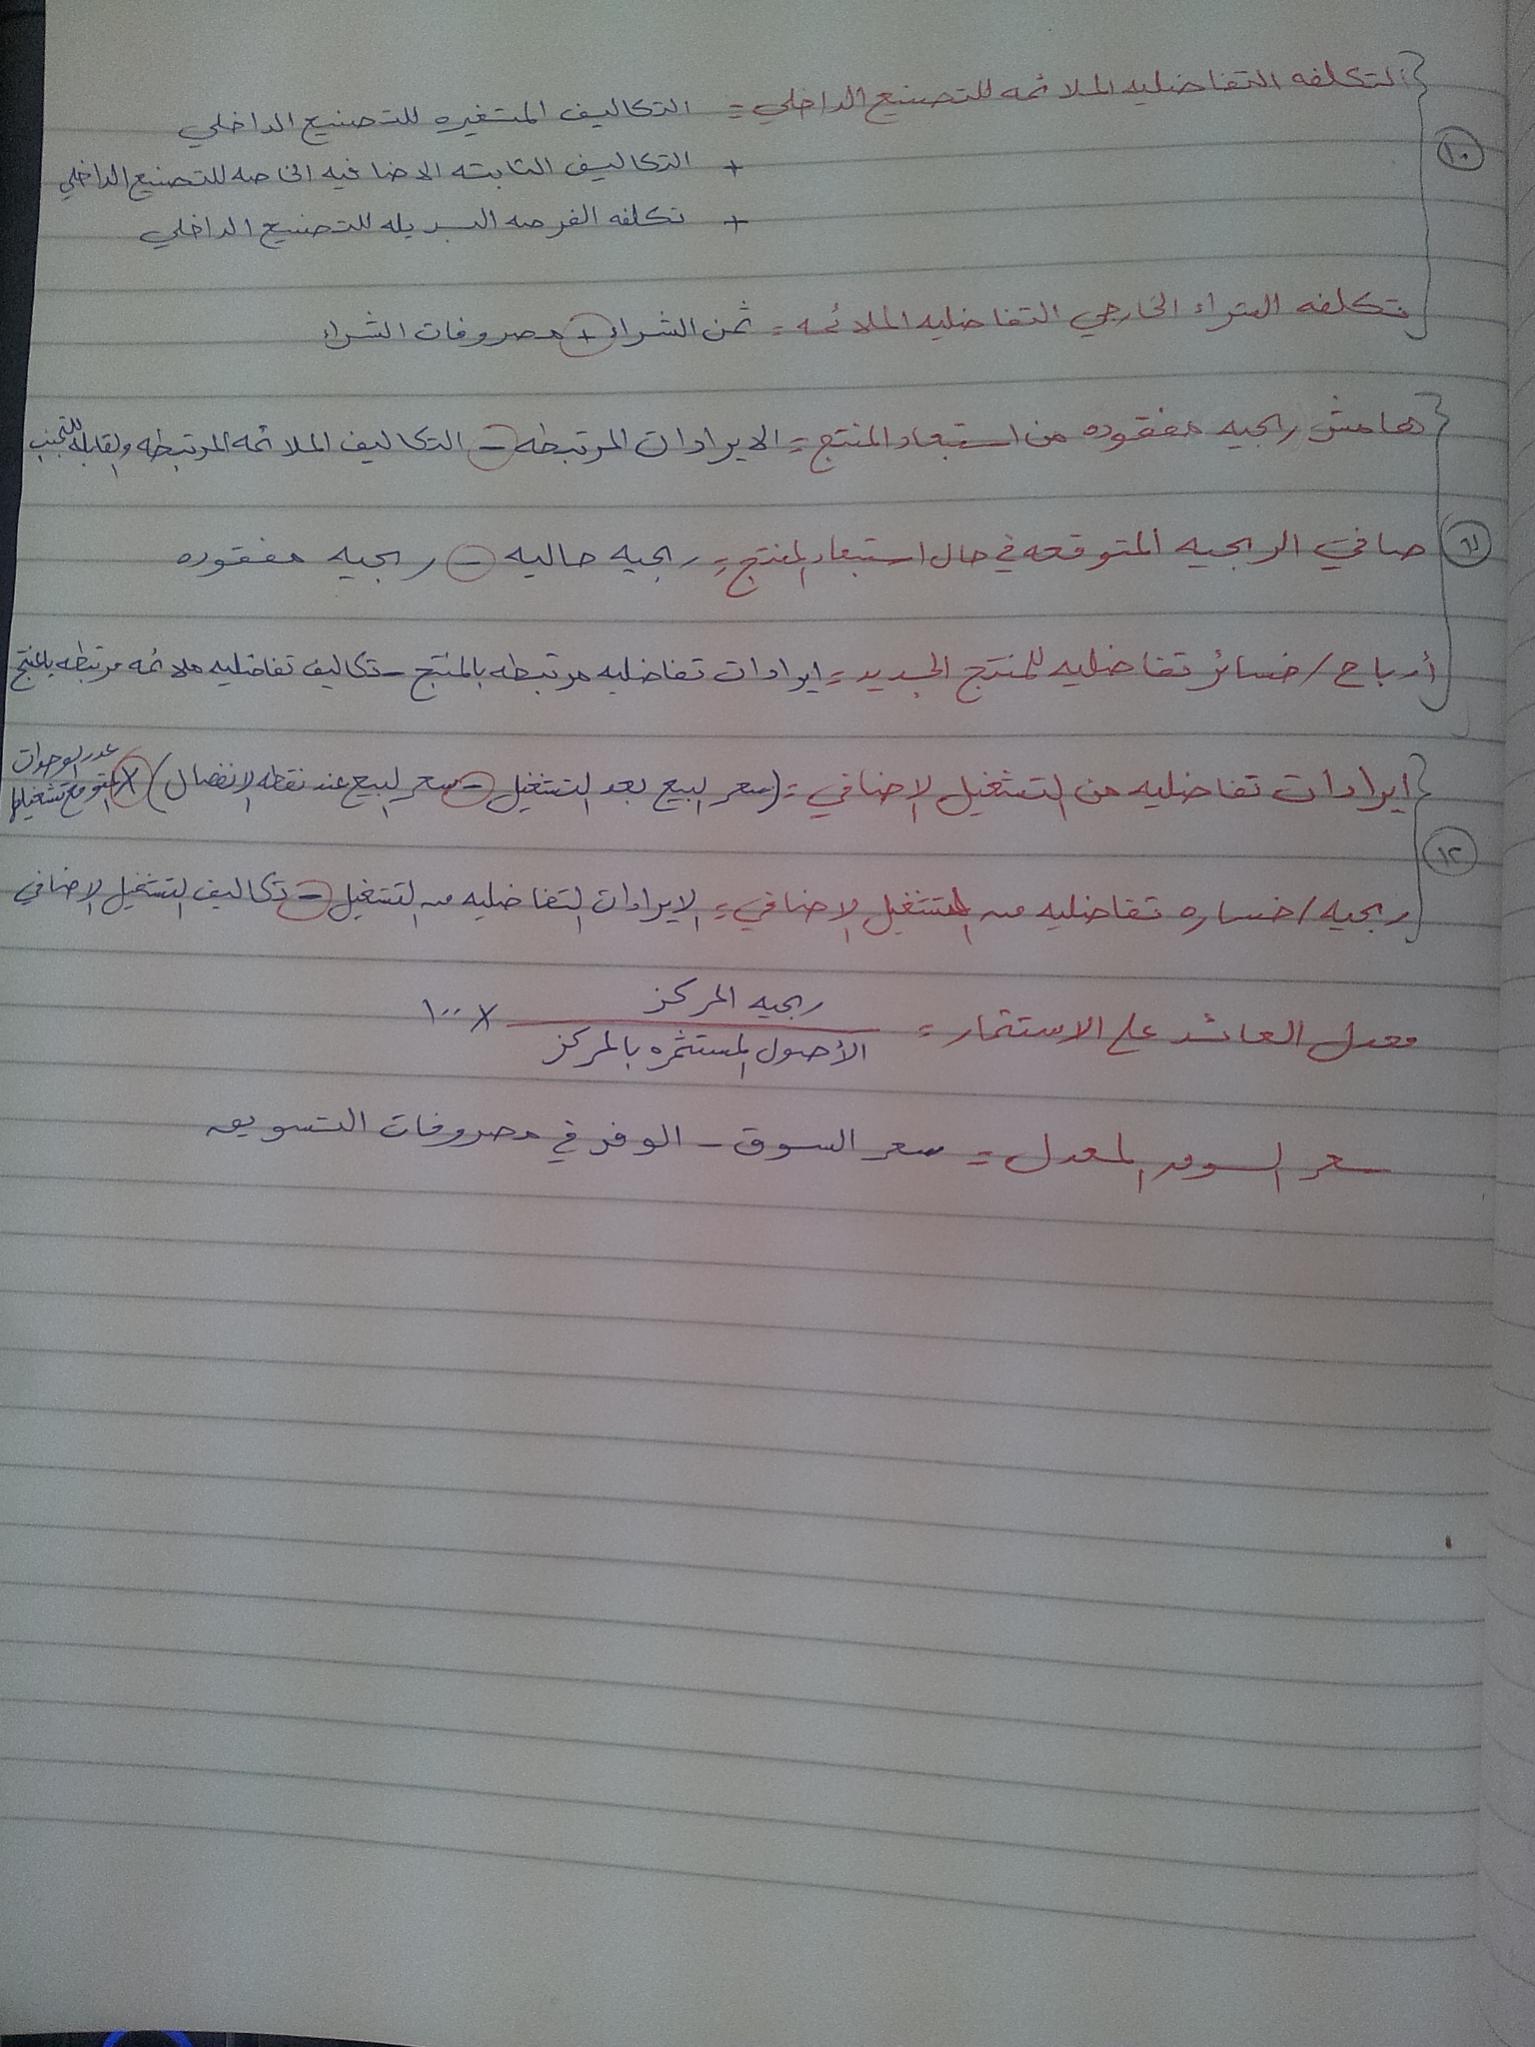 التكلفه التفاضليه الملائمه للتصنيع الداخلي = التكاليف المتغيره للتصنيع الداخلي
١٠
+ التكاليف الثابته الاضافيه الخاصه للتصنيع الداخلي
+ تكلفه الفرصه البديله للتصنيع الداخلي
تكلفه الشراء الخارجي التفاضليه الملائمه = ثمن الشراء + مصروفات الشراء
هامش ربحيه مفقوده من استبعاد المنتج = الايرادات المرتبطه - التكاليف الملائمه المرتبطه والقابله للتجنب
١١
صافي الربحيه المتوقعه في حال استبعاد المنتج = ربحيه حاليه - ربحيه مفقوده
أرباح / خسائر تفاضليه للمنتج الجديد = ايرادات تفاضليه مرتبطه بالمنتج - تكاليف تفاضليه ملائمه مرتبطه بالمنتج
ايرادات تفاضليه من التشغيل الاضافي = (سعر البيع بعد التشغيل - سعر البيع عند نقطه الانفصال) × عدد الوحدات المتوقع تشغيلها
١٢
ربحيه / خساره تفاضليه من التشغيل الاضافي = الايرادات التفاضليه من التشغيل - تكاليف التشغيل الاضافي
معدل العائد على الاستثمار = ربحيه المركز
الأصول المستثمره بالمركز × ١٠٠
سعر السوق المعدل = سعر السوق - الوفر في مصروفات التسويق